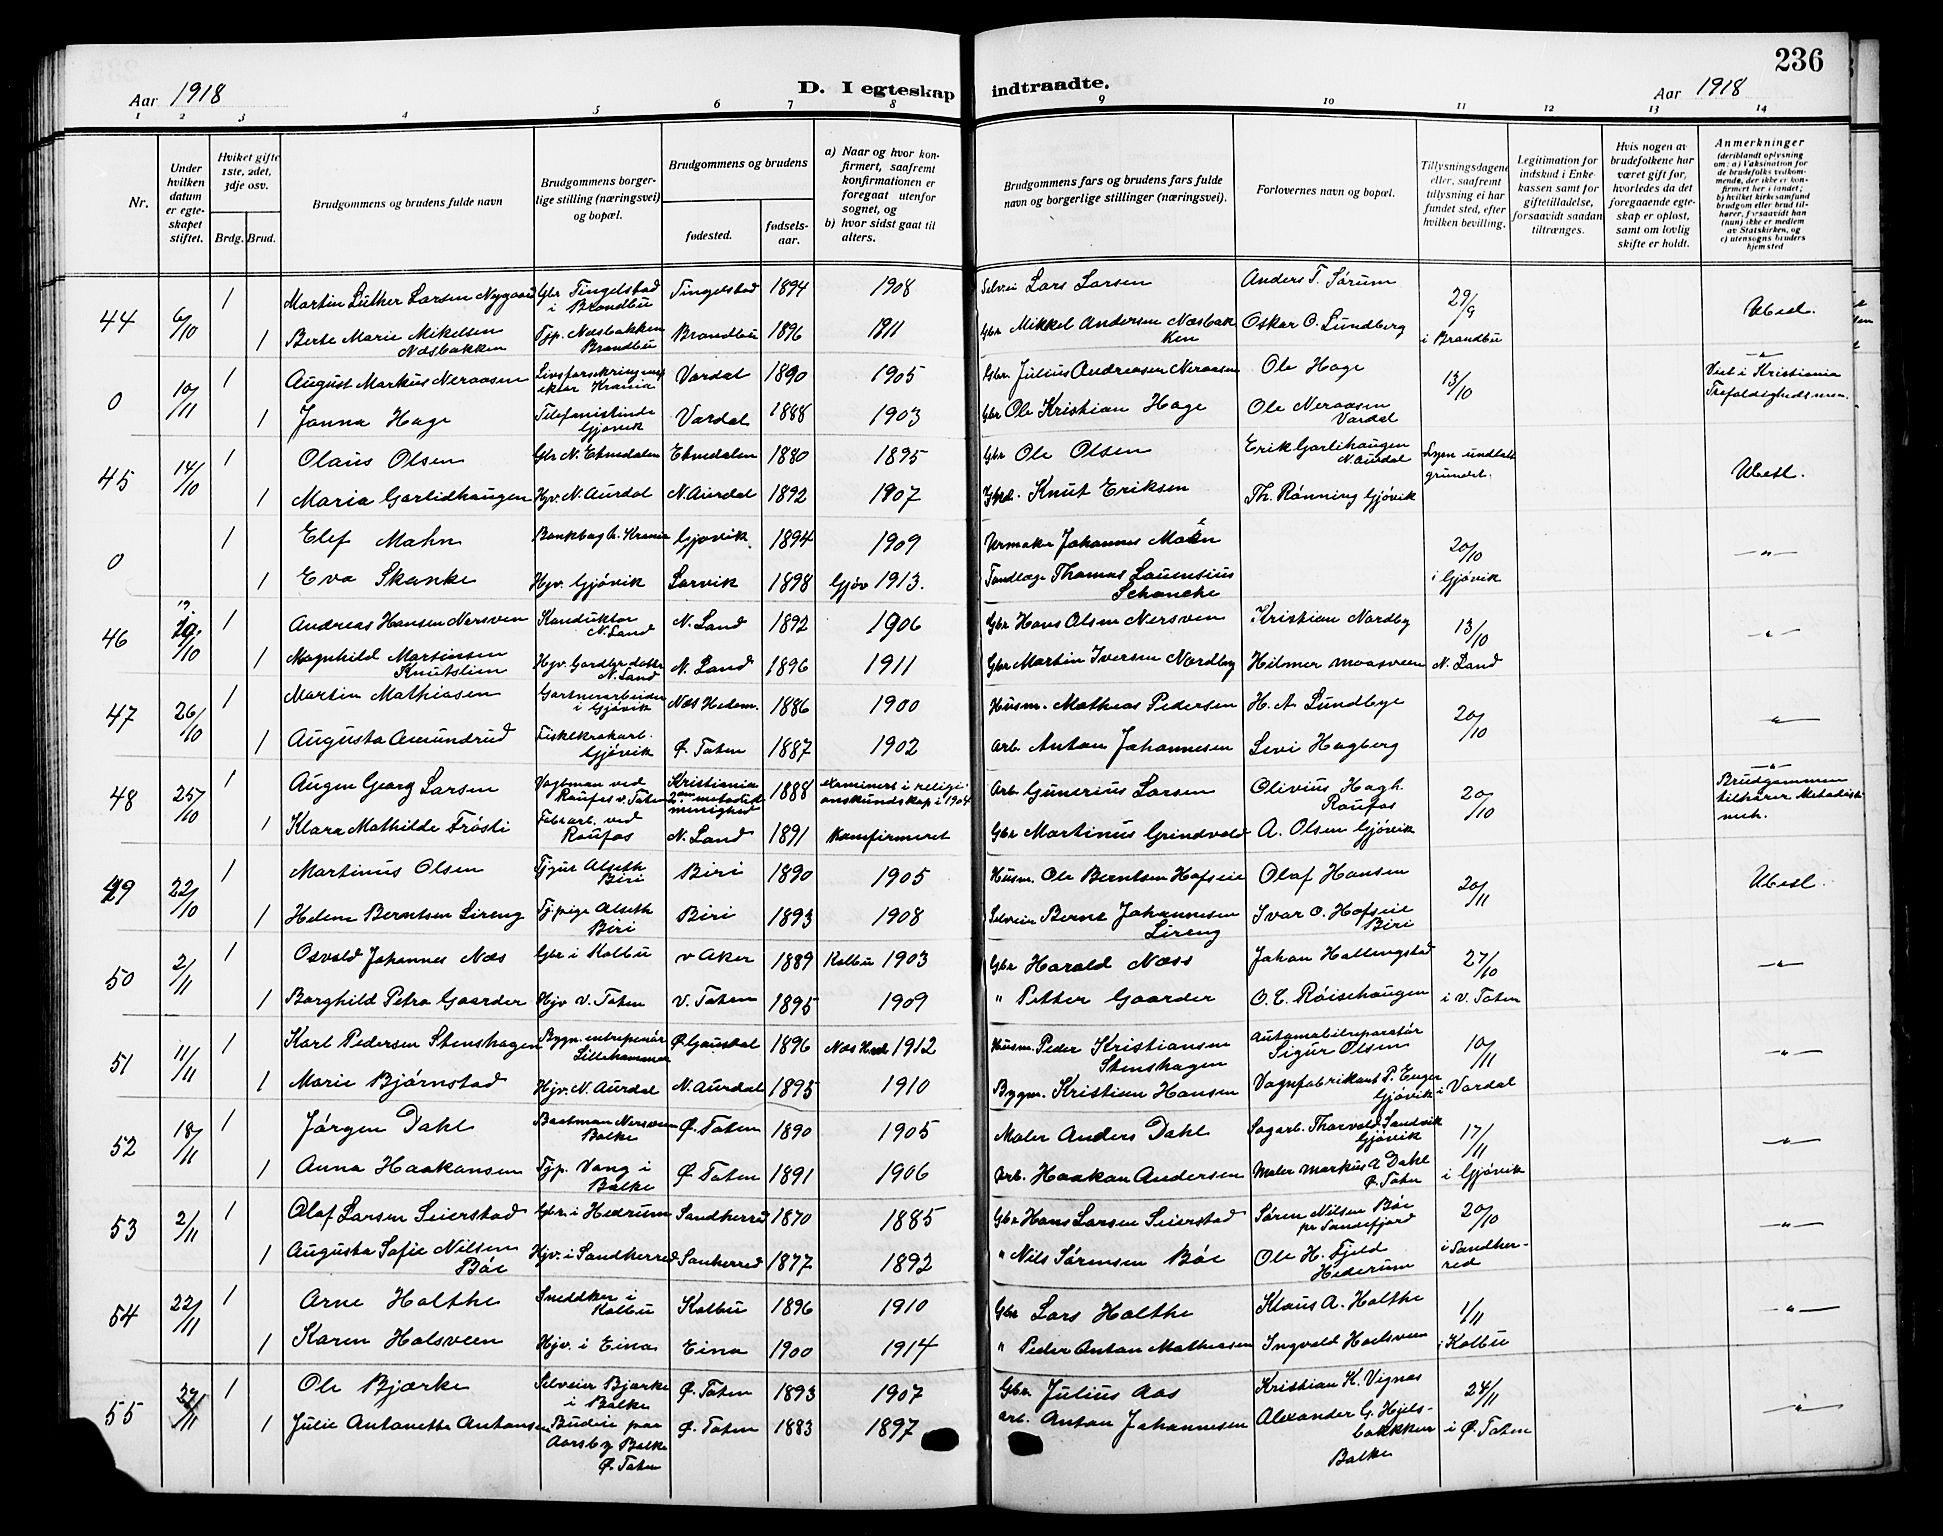 236
Aar 1918
D. I egteskap indtraadte.
Aar 1918
1 2 3 4 5 6 7 8 9 10 11 12 13 14
Nr.
Under hvilken datum er egteskapet stiftet.
Hviket gifte 1ste, 2det, 3dje osv.
Brdg. Brud.
Brudgommens og brudens fulde navn
Brudgommens borgerlige stilling (næringsvei) og bopæl.
Brudgommens og brudens
fødested.
fødselsaar.
a) Naar og hvor konfirmert, saafremt konfirmationen er foregaat utenfor sognet, og
b) hvor sidst gaat til alters.
Brudgommens fars og brudens fars fulde navn og borgerlige stillinger (næringsvei).
Forlovernes navn og bopæl.
Tillysningsdagene eller, saafremt tillysning ei har fundet sted, efter hvilken bevilling.
Legitimation for indskud i Enkekassen samt for giftetilladelse, forsaavidt saadan tiltrænges.
Hvis nogen av brudefolkene har været gift før, hvorledes da det foregaaende egteskap er opløst, samt om lovlig skifte er holdt.
Anmerkninger
(deriblandt oplysning om: a) Vaksination for de brudefolks vedkommende, der ikke er konfirmert her i landet; b) hvilket kirkesamfund brudgom eller brud tilhører, forsaavidt han (hun) ikke er medlem av Statskirken, og c) utensogns bruders hjemsted
44 6/10 1 Martin Luther Larsen Nygaard Gbr Tingelstad i Brandbu Tingelstad 1894 1908 Selvei Lars Larsen Anders T. Sørum 29/9 i Brandbu Ubesl.
1 Berte Marie Mikelsen Næsbakken Tjp. Næsbakken Brandbu Brandbu 1896 1911 Gbr Mikkel Andersen Næsbakken Oskar O. Lundberg
0 10/11 1 August Markus Neraasen Kra­nia Vardal 1890 1905 Gbr. Julius Andreasen Neraasen Ole Hage 13/10 " Viet i Kristiania Trefoldighedsmen.
1 Janna Hage Telefonistinde Gjøvik Vardal 1888 1903 Gbr Ole Kristian Hage Ole Neraasen Vardal
45 14/10 1 Olaus Olsen Gbr N. Etnedalen Etnedalen 1880 1895 Gbr Ole Olsen Erik Garlihaugen N. Aurdal Ubesl.
1 Maria Garlidhaugen Hjv. N. Aurdal N. Aurdal 1892 1907 Knut Eriksen Th. Rønning Gjøvik
0 1 Elef Mohn Gjøvik 1894 1909 Urmaker Johannes Moen 20/10 i Gjøvik "
1 Eva Skanke Hjv. Gjøvik Larvik 1898 Gjøv 1913. Tandlæge Thomas Laurentius Schancke
46 19/10 1 Andreas Hansen Nersven Konduktør N. Land N. Land 1892 1906 Gbr Hans Olsen Nersven Kristian Nordby 13/10 N. Land "
1 Magnhild Martinsen Knutslien Hjv. N. Land N. Land 1896 1911 Gbr Martin Iversen Nordby Hilmer Moasveen
47 26/10 1 Martin Mathiasen Gartnerarbeider i Gjøvik Næs Hedem. 1886 1900 Husm. Mathias Pedersen H. A. Lundbye 20/10 "
1 Augusta Amundrud Gjøvik Ø. Toten 1887 1902 Arb. Anton Johannesen Levi Hagberg
48 25/10 1 Augen Georg Larsen Vagtman ved Raufos v. Toten Kristiania 2den metodistmenighed 1888 examinert i religionskundskap i 1904 Arb Gunerius Larsen Olivius Hagh Raufos 20/10 " Brudgommen tilhører Metodistmeh.
1 Klara Mathilde Frøsti Fabrarb. ved Raufos N. Land 1891 konfirmeret Gbr Martinus Grindvold A. Olsen Gjøvik
49 22/10 1 Martinus Olsen Tjgut Alseth Biri Biri 1890 1905 Husm. Ole Berntsen Hofseie Olaf Hansen 20/11 Ubesl.
1 Helene Berntsen Lireng Tjpige Alseth Biri Biri 1893 1908 Selveier Bernt Johannesen Lireng Ivar O. Hofseie Biri
50 2/11 1 Osvald Johannes Næs Gbr i Kolbu v Aker 1889 Kolbu 1903 Gbr Harald Næss Johan Hallingstad 27/10 i V. Toten "
1 Borghild Petra Gaarder Hjv V. Toten V. Toten 1895 1909 " Petter Gaarder O. E. Røisehaugen
51 11/11 1 Karl Pedersen Stenshagen Bygn.entrepenør Lillehammer Ø Gausdal 1896 Næs Hed 1912 Husm. Peder Kristiansen Stenshagen Automobilreparatør Sigur Olsen 10/11 i Vardal "
1 Marie Bjørnstad Hjv. N. Aurdal N. Aurdal 1895 1910 Bygm. Kristian Hansen Vognfabrikant P. Enger Gjøvik
52 18/11 1 Jørgen Dahl Baatman Nersveen Balke Ø. Toten 1890 1905 Maler Anders Dahl Sagarb. Thorvald Sandvik Gjøvik 17/11 i Gjøvik "
1 Anna Haakonsen Tjp. Vang i Balke Ø. Toten 1891 1906 Arb. Haakon Andersen Maler Markus A. Dahl Ø. Toten
53 2/11 1 Olaf Larsen Seierstad Gbr. i Hedrum Sandherred 1870 1885 Gbr Hans Larsen Seierstad Søren Nilsen Bøe pr Sandefjord 20/10 i Sandherred "
1 Augusta Sofie Nilsen Bøe Hjv. i Sandherred Sanherred 1877 1892 " Nils Sørensen Bøe Ole H. Fjeld Hederum
54 22/11 1 Arne Holthe Sneddker i Kolbu Kolbu 1896 1910 Gbr Lars Holthe Klaus A. Holthe 1/11 i Kolbu "
1 Karen Halsveen Hjv. i Eina Eina 1900 1914 " Peder Anton Mathiasen Ingvald Hoelsveen
55 1 Ole Bjærke Selveier Bjærke i Balke Ø. Toten 1893 1907 Gbr. Julius Aas Kristian K. Vignas 24/11 i Ø. Toten "
1 Julie Antonette Antonsen Budeie paa Aarsby Balke Ø. Toten Ø. Toten 1883 1897 Arb. Anton Johannesen Alexander G. Hjelsbakkken Balke